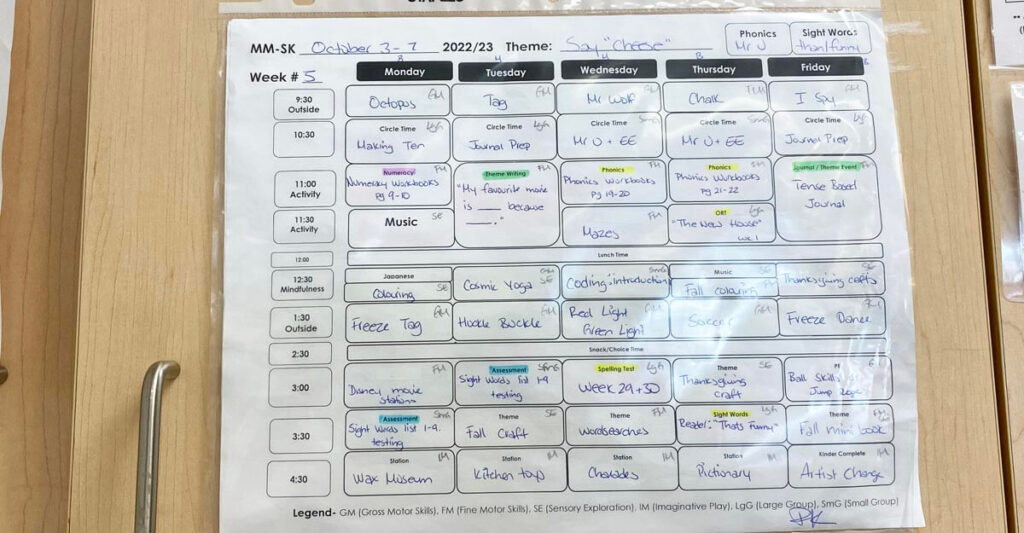 MM-SK October 3-7 2022/23 Theme: Say "Cheese"
Phonics
Mr U
Sight Words
than/funny
Week # 5
Monday Tuesday Wednesday Thursday Friday
9:30
Outside
Octopus GM
Tag GM
Mr Wolf
Chalk
I Spy
10:30
Circle Time LgG
Making Ten
Circle Time LgG
Journal Prep
Circle Time SmG
Mr U + EE
Circle Time SmG
Mr U + EE
Circle Time
Journal Prep
11:00
Activity
Numeracy FM
Numeracy Workbooks
pg 9-10
Theme Writing FM
"My favourite movie
is ___ because
___."
Phonics FM
Phonics Workbooks
pg 19-20
Phonics
Phonics Workbooks
pg 21-22
Journal / Theme Event
Tense Based
Journal
11:30
Activity
Music SE
Mazes FM
ORT LgG
"The New House"
WK 1
12:00
Lunch Time
12:30
Mindfulness
Japanese
Colouring SE
Cosmic Yoga SE
Coding: Introduction SmG
Music SE
Fall colouring
Thanksgiving cafts SE
1:30
Outside
Freeze Tag GM
Hockle Buckle GM
Red Light
Green Light
Soccer
Freeze Dance
2:30
Snack/Choice Time
3:00
Disney movie
stations
FM
Assessment SmG
Sight Words list 1-9
testing
Spelling Test LgG
Week 29+30
Theme SE
Thanksgiving
craft
Ball Skills
Jump rope
3:30
Assessment SmG
Sight Words list 1-9.
testing
Theme SE
Fall Craft
Theme FM
Wordsearches
Sight Words LgG
Reader: "Thats Funny"
Theme FM
Fall mini book
4:30
Station IM
Wax Museum
Station IM
Kitchen toys
Station IM
Charades
Station IM
Pictionary
Kinder Complete IM
Artist Change
Legend- GM (Gross Motor Skills), FM (Fine Motor Skills), SE (Sensory Exploration), IM (Imaginative Play), LgG (Large Group), SmG (Small Group)